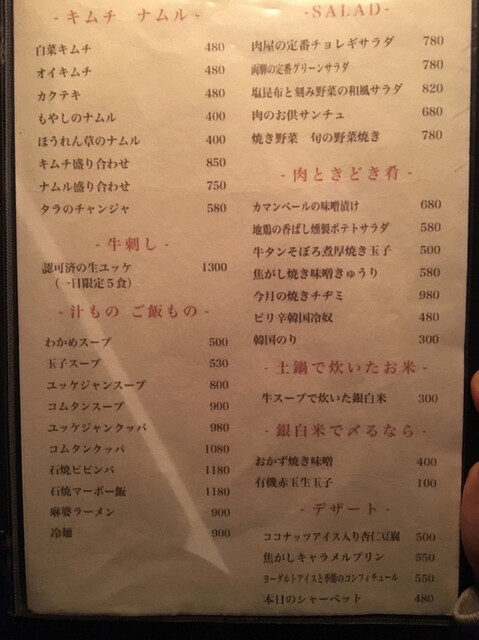 - キムチ ナムル -
白菜キムチ 480
オイキムチ 480
カクテキ 480
もやしのナムル 400
ほうれん草のナムル 400
キムチ盛り合わせ 850
ナムル盛り合わせ 750
タラのチャンジャ 580
- 牛刺し -
認可済の生ユッケ 1300
（一日限定５食）
- 汁もの ご飯もの -
わかめスープ 500
玉子スープ 530
ユッケジャンスープ 800
コムタンスープ 900
ユッケジャンクッパ 980
コムタンクッパ 1080
石焼ビビンバ 1180
石焼マーボー飯 1180
麻婆ラーメン 900
冷麺 900
-SALAD-
肉屋の定番チョレギサラダ 780
両聯の定番グリーンサラダ 780
塩昆布と刻み野菜の和風サラダ 820
肉のお供サンチュ 680
焼き野菜 旬の野菜焼き 780
- 肉ときどき肴 -
カマンベールの味噌漬け 680
地鶏の香ばし燻製ポテトサラダ 580
牛タンそぼろ煮厚焼き玉子 500
焦がし焼き味噌きゅうり 580
今月の焼きチヂミ 980
ピリ辛韓国冷奴 480
韓国のり 300
- 土鍋で炊いたお米 -
牛スープで炊いた銀白米 300
- 銀白米で〆るなら -
おかず焼き味噌 400
有機赤玉生玉子 100
- デザート -
ココナッツアイス入り杏仁豆腐 500
焦がしキャラメルプリン 550
ヨーグルトアイスと季節のコンフィチュール 550
本日のシャーベット 480